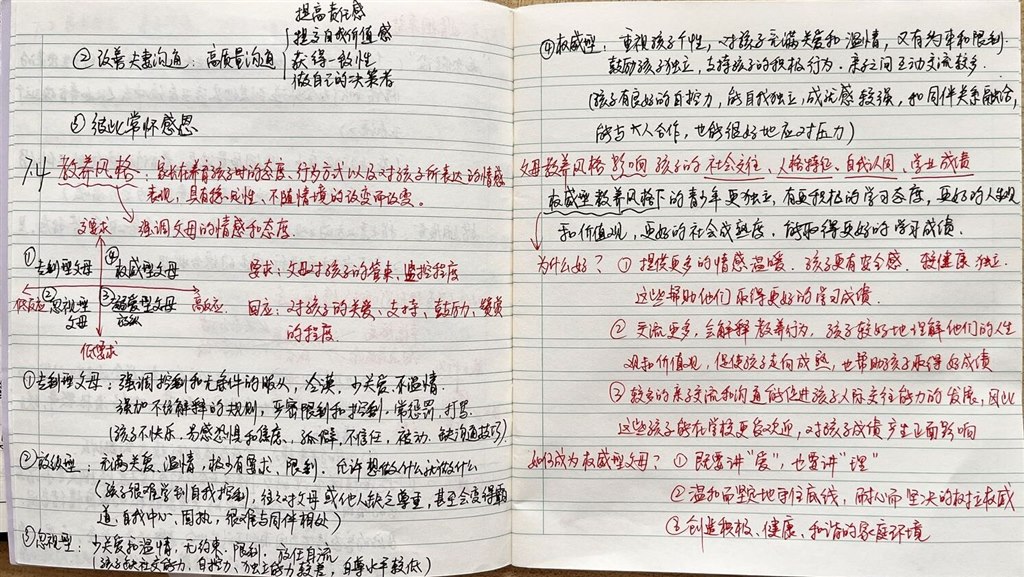 提高责任感
提高自我价值感
② 改善夫妻沟通：高质量沟通
获得一致性
做自己的决策者
③ 彼此常怀感恩
7.4 教养风格：家长在养育孩子时的态度、行为方式以及对孩子所表达的情感
表现，具有稳定性、不随情境的改变而改变。
高要求 强调父母的情感和态度
①专制型父母 ④权威型父母
要求：父母对孩子的管束、监控程度
低反应 ②忽视型父母 ③ 父母 放纵 高反应
回应：对孩子的关爱、支持、鼓励、赞赏
的程度
低要求
①专制型父母：强调控制和无条件的服从，冷漠，少关爱，不温情
强加不给解释的规则，严密限制和控制，常惩罚、打骂
(孩子不快乐，易感恐惧和焦虑，孤僻，不信任，被动，缺沟通技巧)
②放纵型：充满关爱、温情，极少有要求、限制，允许想做什么就做什么
(孩子很难学到自我控制，往往对父母或他人缺乏尊重，甚至会变得霸
道、自我中心、固执，很难与同伴相处)
③忽视型：少关爱和温情，无约束、限制，放任自流
(孩子缺社交能力、自控力、独立能力较差，自尊水平较低)
④权威型：重视孩子个性，对孩子充满关爱和温情，又有约束和限制
鼓励孩子独立，支持孩子的积极行为，亲子之间互动交流较多
(孩子有良好的自控力，能自我独立，成就感较强，和同伴关系融洽，
能与大人合作，也能很好地应对压力)
父母教养风格影响孩子的社会交往、人格特征、自我认同、学业成绩
权威型教养风格下的青少年更独立，有更积极的学习态度，更好的人生观
和价值观，更好的社会成熟度，能取得更好的学习成绩
为什么好？①提供更多的情感温暖，孩子更有安全感，较健康独立
这些帮助他们取得更好的学习成绩
②交流更多，会解释教养行为，孩子较好地理解他们的人生
观和价值观，促使孩子走向成熟，也帮助孩子取得好成绩
③较多的亲子交流和沟通能促进孩子人际交往能力的发展，因此
这些孩子能在学校更受欢迎，对孩子成绩产生正面影响
如何成为权威型父母？①既要讲“爱”，也要讲“理”
②温和而坚定地守住底线，耐心而坚决的树立权威
③创造积极、健康、和谐的家庭环境